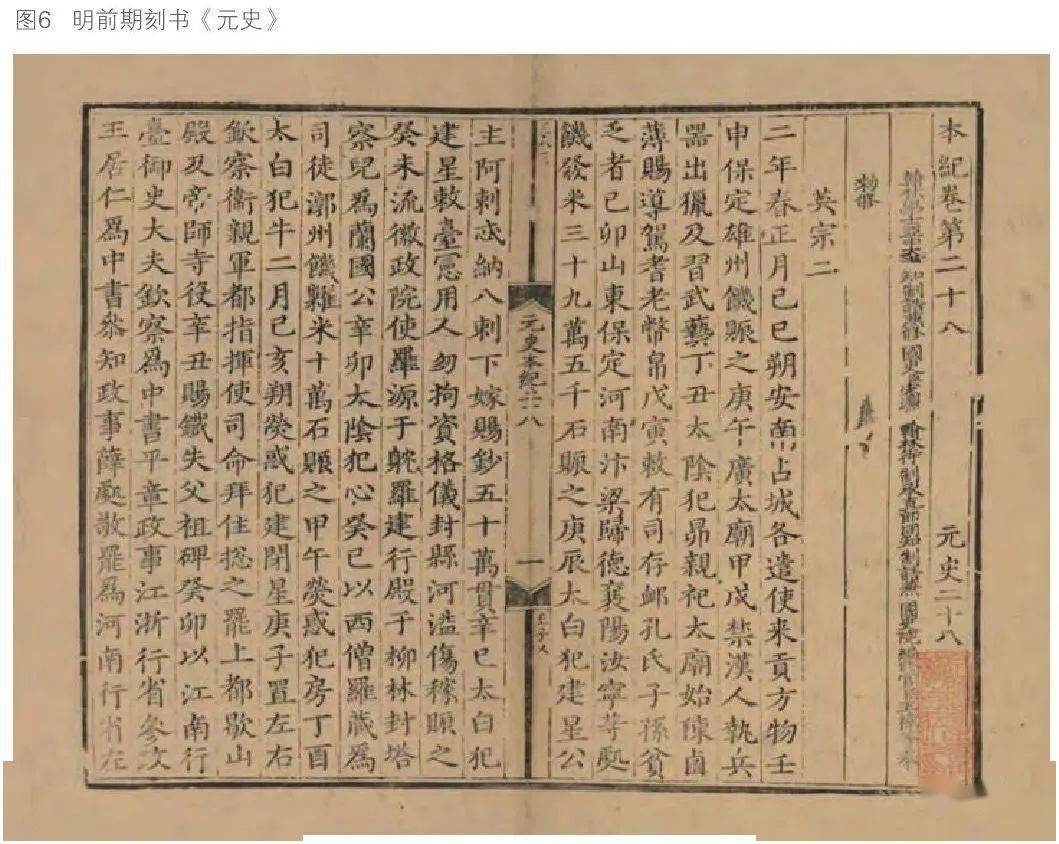 图6 明前期刻书《元史》
本紀卷第二十八 元史二十八
國史 制誥兼 國史院編修官
勑修
英宗二
二年春正月己巳朔安南占城各遣使來貢方物壬
申保定雄州饑賑之庚午廣太廟甲戌禁漢人執兵
器出獵及習武藝丁丑太陰犯昴親祀太廟始陳鹵
薄賜導駕耆老幣帛戊寅敕有司存卹孔氏子孫貧
乏者己卯山東保定河南汴梁歸德襄陽汝寧等處
饑發米三十九萬五千石賑之庚辰太白犯建星公
元史本紀二十八 一
主阿剌忒納八剌下嫁賜鈔五十萬貫辛巳太白犯
建星敕臺憲用人勿拘資格儀封縣河溢傷稼賑之
癸未流徽政院使羅源于躭羅建行殿于柳林封塔
察兒爲蘭國公辛卯太陰犯心癸巳以西僧羅藏爲
司徒漷州饑糶米十萬石賑之甲午熒惑犯房丁酉
太白犯牛二月己亥朔熒惑犯建閉星庚子置左右
欽察衞親軍都指揮使司命拜住揔之罷上都歇山
殿及帝師寺役辛丑賜鐵失父祖碑癸卯以江南行
臺御史大夫欽察爲中書平章政事江浙行省參政
王居仁爲中書參知政事薛處敬罷爲河南行省左